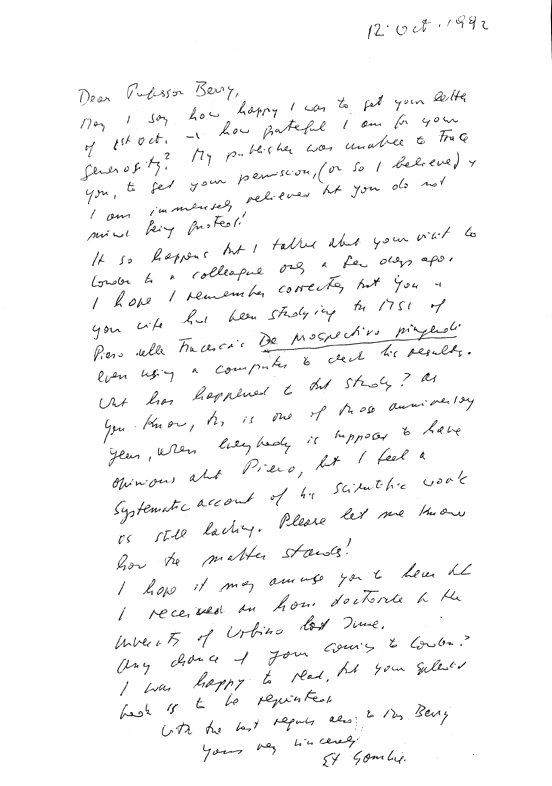 12. Oct. 1992
Dear Professor Berry,
May I say how happy I was to get your letter
of 1st Oct. & how grateful I am for your
generosity? My publisher was unable to trace
you, to get your permission, (or so I believed) &
I am immensely relieved that you do not
mind being quoted!
It so happens that I talked about your visit to
London to a colleague only a few days ago.
I hope I remember correctly that you &
your wife had been studying the MSS of
Piero della Francesca's De prospectiva pingendi
even using a computer to check his results.
What has happened to that study? As
you know, this is one of those anniversary
years, when everybody is supposed to have
opinions about Piero, but I feel a
systematic account of his scientific work
is still lacking. Please let me know
how the matter stands!
I hope it may amuse you to hear that
I received an hon. doctorate in the
University of Urbino last June.
Any chance of your coming to London?
I was happy to read, that your splendid
book is to be reprinted.
With the best regards also to Mrs Berry
Yours very sincerely